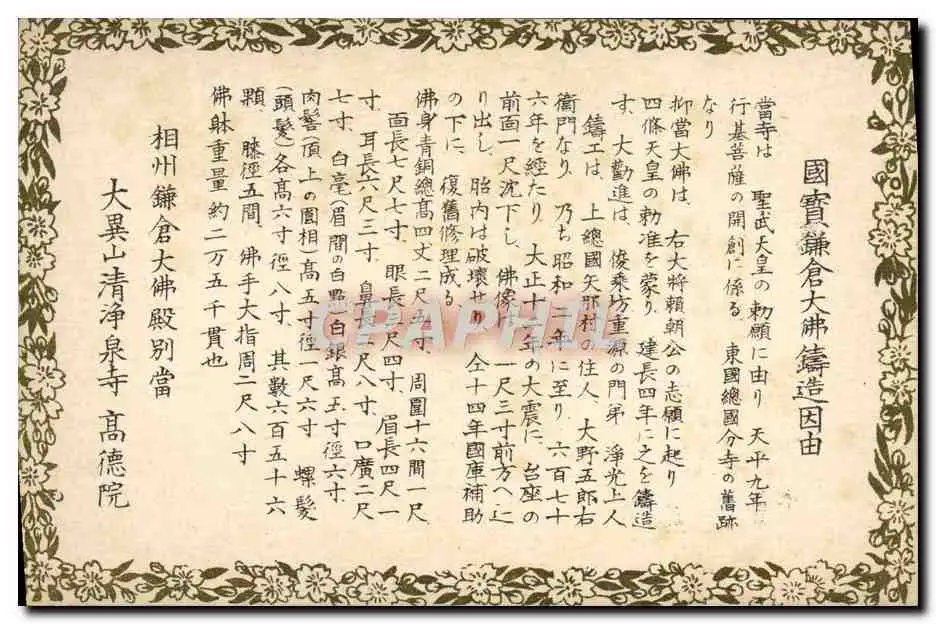 國寶鎌倉大佛鑄造因由
當寺は 聖武天皇の勅願に由り 天平九年
行基菩薩の開創に係る 東國總國分寺の舊跡
なり
抑當大佛は、右大将頼朝公の志願に起り
四條天皇の勅准を蒙り、建長四年に之を鑄造
す、大勸進は、俊乘坊重源の門弟 淨光上人
鑄工は、上總國矢那村の住人、大野五郎右
衛門なり、乃ち昭和 二年に至り、六百七十
六年を經たり、大正十 年の大震に、台座の
前面一尺沈下し、佛像 一尺三寸前方へ辷
り出し、胎内は破壊せり 仝十四年國庫補助
の下に、復舊修理成る
佛身青銅總高四丈二尺 寸、周圍十六間一尺
面長七尺七寸、眼長 尺四寸、眉長四尺一
寸、耳長六尺三寸、鼻長 尺八寸、口廣二尺
七寸、白毫(眉間の白點)白銀高五寸徑六寸、
肉髻(頂上の圓相)高五寸徑一尺六寸 螺髪
(頭髪)各高六寸徑八寸、其数六百五十六
顆、膝徑五間、佛手大指周二尺八寸
佛躰重量約二万五千貫也
相州鎌倉大佛殿別當
大異山清淨泉寺 高德院
CPAPHIL